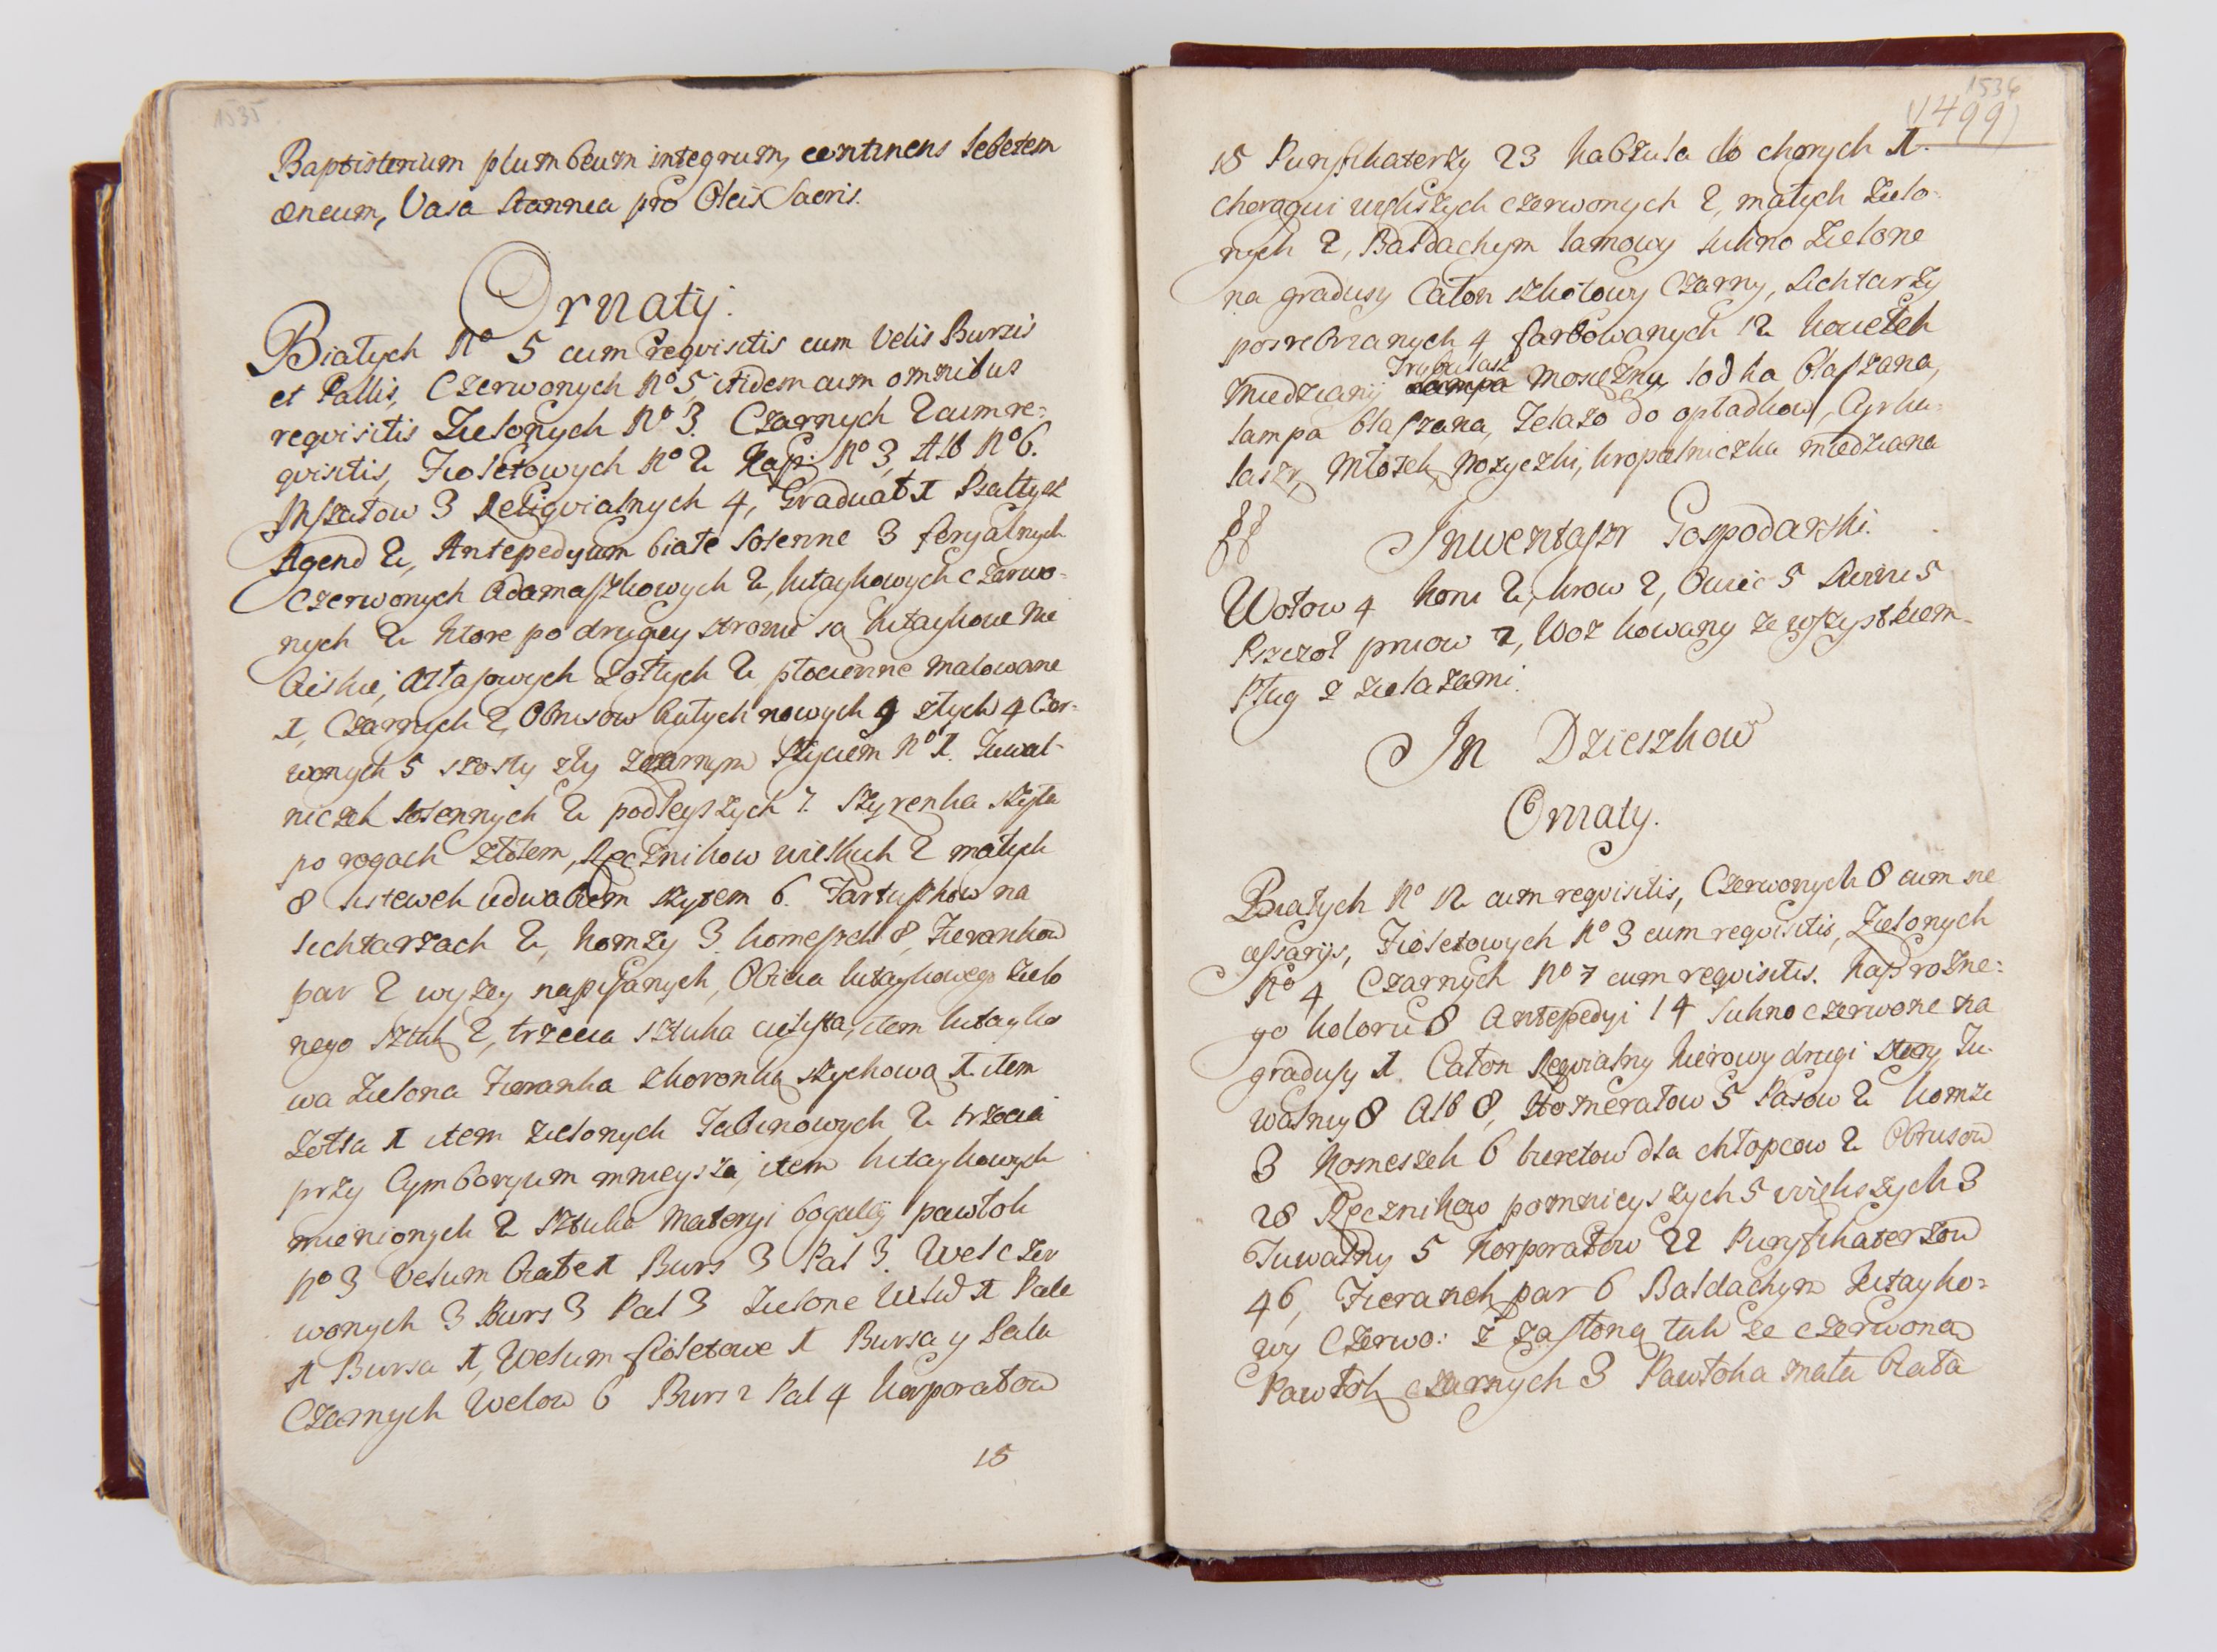 1535
Baptisterium plumbeum integrum, continens lebetem
æneum, Vasa Stannea pro Oleis Sacris.
Ornaty.
Białych No 5 cum reqvisitis cum Velis Bursis
et Pallis, Czerwonych No 5, itidem cum omnibus
reqvisitis Zielonych No 3. Czarnych 2 cum re=
qvisitis, Fioletowych No 2 Kap: No 3, Alb No 6.
Mszałow 3 Reliqvialnych 4, Graduał 1 Psałtyrz
Agend 2, Antepedyum białe Solenne 3 feryalnych
Czerwonych Adamaszkowych 2, kitaykowych czerwo=
nych 2 ktore po drugiey stronie są kitaykowe Nie
bieskie, Atłasowych żołtych 2, płocienne malowane
1, Czarnych 2, Obrusow białych nowych 9 złych 4 Cer=
wonych 5 szosty zły z czarnym szyciem No 1. Tuwal-
niczek solennych 2 podleyszych 7. Szyrenka szyta
po rogach złotem, Ręcznikow wielkich 2 małych
8 listewek iedwabiem szytem 6. Fartuszkow na
lichtarzach 2, komży 3 komeszek 8, Fieranków
par 2 wyżey napisanych, Obicia kitaykowego zielo
nego sztuk 2, trzecia sztuka cięższa, item kitayko
wa zielona Fieranka z koronką szychową 1. item
żołta 1 item zielonych Tabinowych 2 trzecia
przy Cymboryum mnieysza, item kitaykowych
mienionych 2 sztuka materyi bogatey pawłok
No 3 Velum białe 1 Burs 3 Pal 3. Wel czer
wonych 3 Burs 3 Pal 3 Zielone Wel 1 Pale
1 Bursa 1, Welum fioletowe 1 Bursa y Pala
Czarnych Welow 6 Burs 2 Pal 4 korporałow
18
1536
(1499)
18 Puryfikaterzy 23 kabzula do chorych 1.
choragwi większych czerwonych 2, małych zielo=
nych 2, Baldachym lamowy sukno zielone
na gradusy Całon szkotowy Czarny, Lichtarzy
posrebrzanych 4 farbowanych 12 kociełek
miedziany Trybularz mosiężny łodka blaszana,
lampa blaszana, Zelazo do opładkow, Cyrku=
larz, Młotek, Nożyczki, kropelniczka miedziana
ff
Inwentaszr Gospodarski.
Wołow 4 koni 2, krow 2, Owiec 5 Swini 5
Pszczoł pniow 7, Woz kowany ze wszystkiem
Pług z żelazami.
In Dzieszkow
Ornaty.
Białych No 12 cum reqvisitis, Czerwonych 8 cum ne
cessarijs, Fioletowych No 3 cum reqvisitis, Zielonych
No 4 Czarnych No 7 cum reqvisitis. Kap rożne=
go koloru 8 Antepedyi 14 Sukno czerwone na
gradusy 1. Całon Reqvialny kierowy drugi stary Tu=
walny 8 Alb 8, Humerałow 5 Pasow 2 komże
3 komeszek 6 biretow dla chłopcow 2 Obrusow
28 Ręcznikow pomnieyszych 5 większych 3
Tuwalny 5 korporałow 22 Puryfikaterzow
46, Fieranek par 6 Baldachym kitayko=
wy Czerwo: z zasłoną tak że czerwoną
Pawłok czarnych 3 Pawłoka mała biała